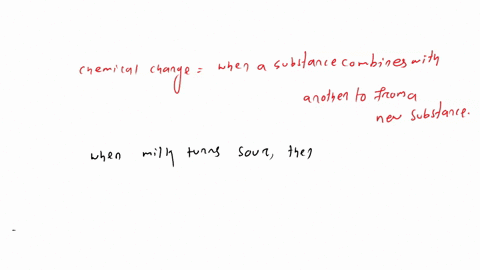 chemical change = when a substance combines with
another to from a
new substance.
when milk turns sour, then